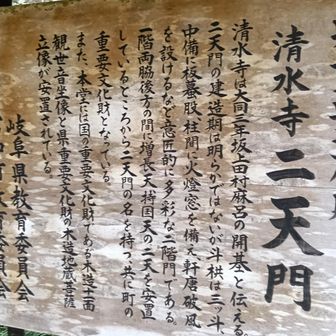 清水寺二天門
清水寺は大同三年坂上田村麻呂の開基と伝える。
二天門の建造期は明らかではないが斗栱は三ッ斗、
中備に板蟇股、柱間に火燈窓を備え、軒唐破風
を設けるなど意匠的に多彩な二階門である。
一階両脇後方の間に増長天持国天の二天を安置
しているところから二天門の名を持つ、共に町の
重要文化財となっている。
また、本堂には国の重要文化財である木造十一面
観世音坐像と県重要文化財の木造地蔵菩薩
立像が安置されている。
岐阜県教育委員会
教育委員会